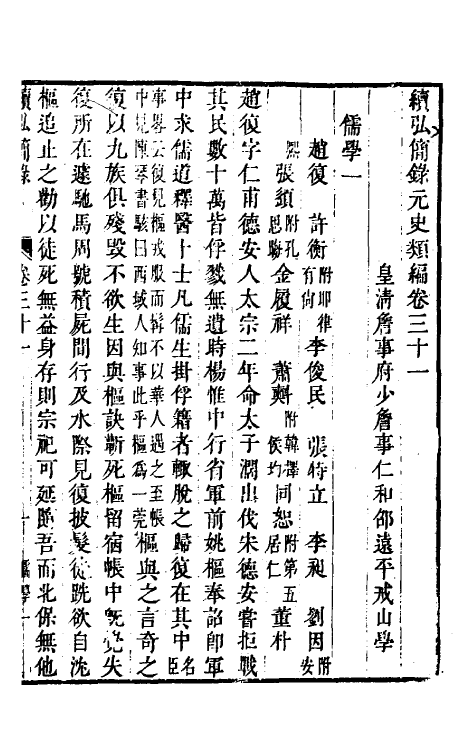 續弘簡錄元史類編卷三十一
皇清詹事府少詹事仁和邵遠平戒山學
儒學一
趙復　許衡附耶律有尚李俊民　張特立　李昶　劉因附安
熙張須附孔思聯金履祥　蕭𣂏附韓擇侯均同恕附第五居仁董朴
趙復字仁甫德安人太宗二年命太子濶出伐宋德安嘗拒戰
其民數十萬皆俘戮無遺時楊惟中行省軍前姚樞奉詔卽軍
中求儒道釋醫卜士凡儒生掛俘籍者輒脫之歸復在其中名臣
事畧云復見樞戎服而髯不以華人遇之至帳中見陳琴書駭曰西域人知事此乎樞爲一莞樞與之言奇之
復以九族俱殘毀不欲生因與樞訣蘄死樞留宿帳中旣覺失
復所在遽馳馬周號積屍間行及水際見復披髮徒跣欲自沈
樞追止之勸以徒死無益身存則宗祀可延隨吾而北保無他
續弘簡錄　卷三十一　儒學一